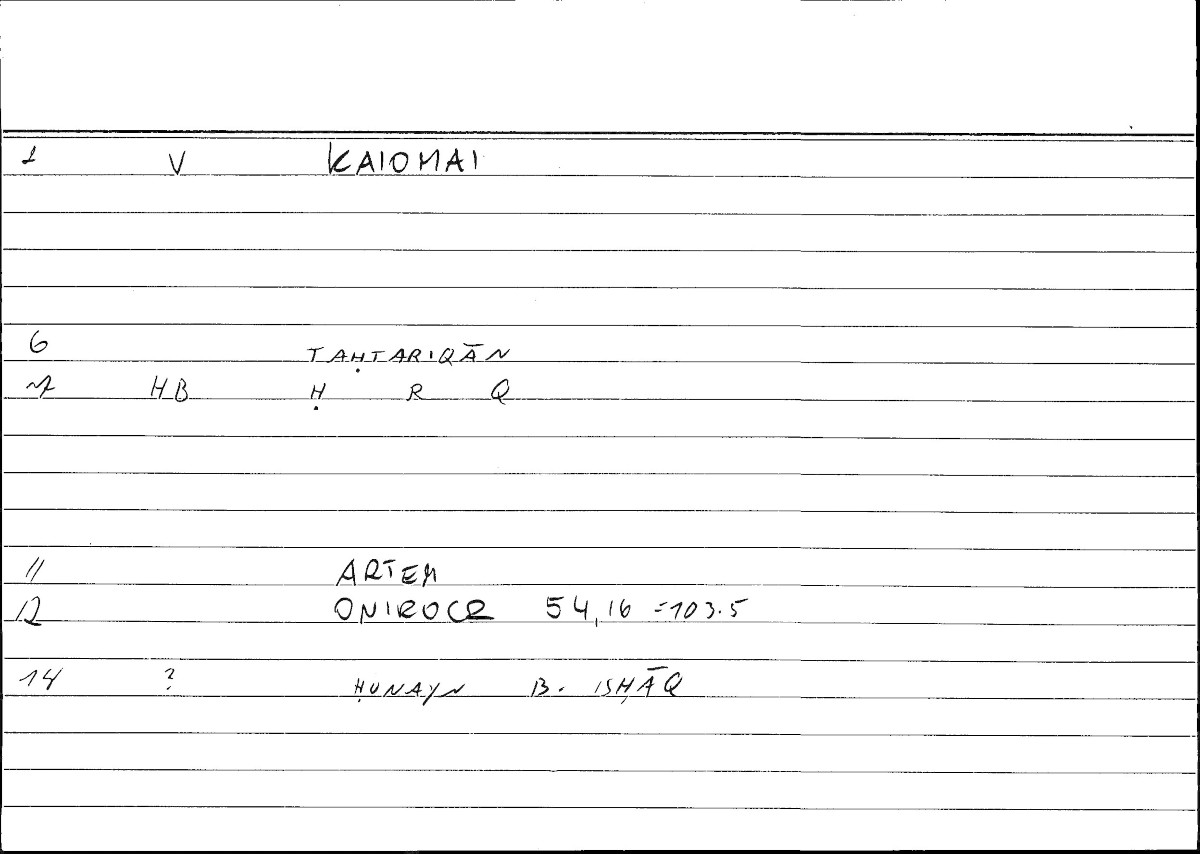 1 V KAIOMAI
6 TAḤTARIQĀN
7 HB Ḥ R Q
11 ARTEM
12 ONIROCR 54,16 =103.5
14 ? ḤUNAYN B. ISḤĀQ